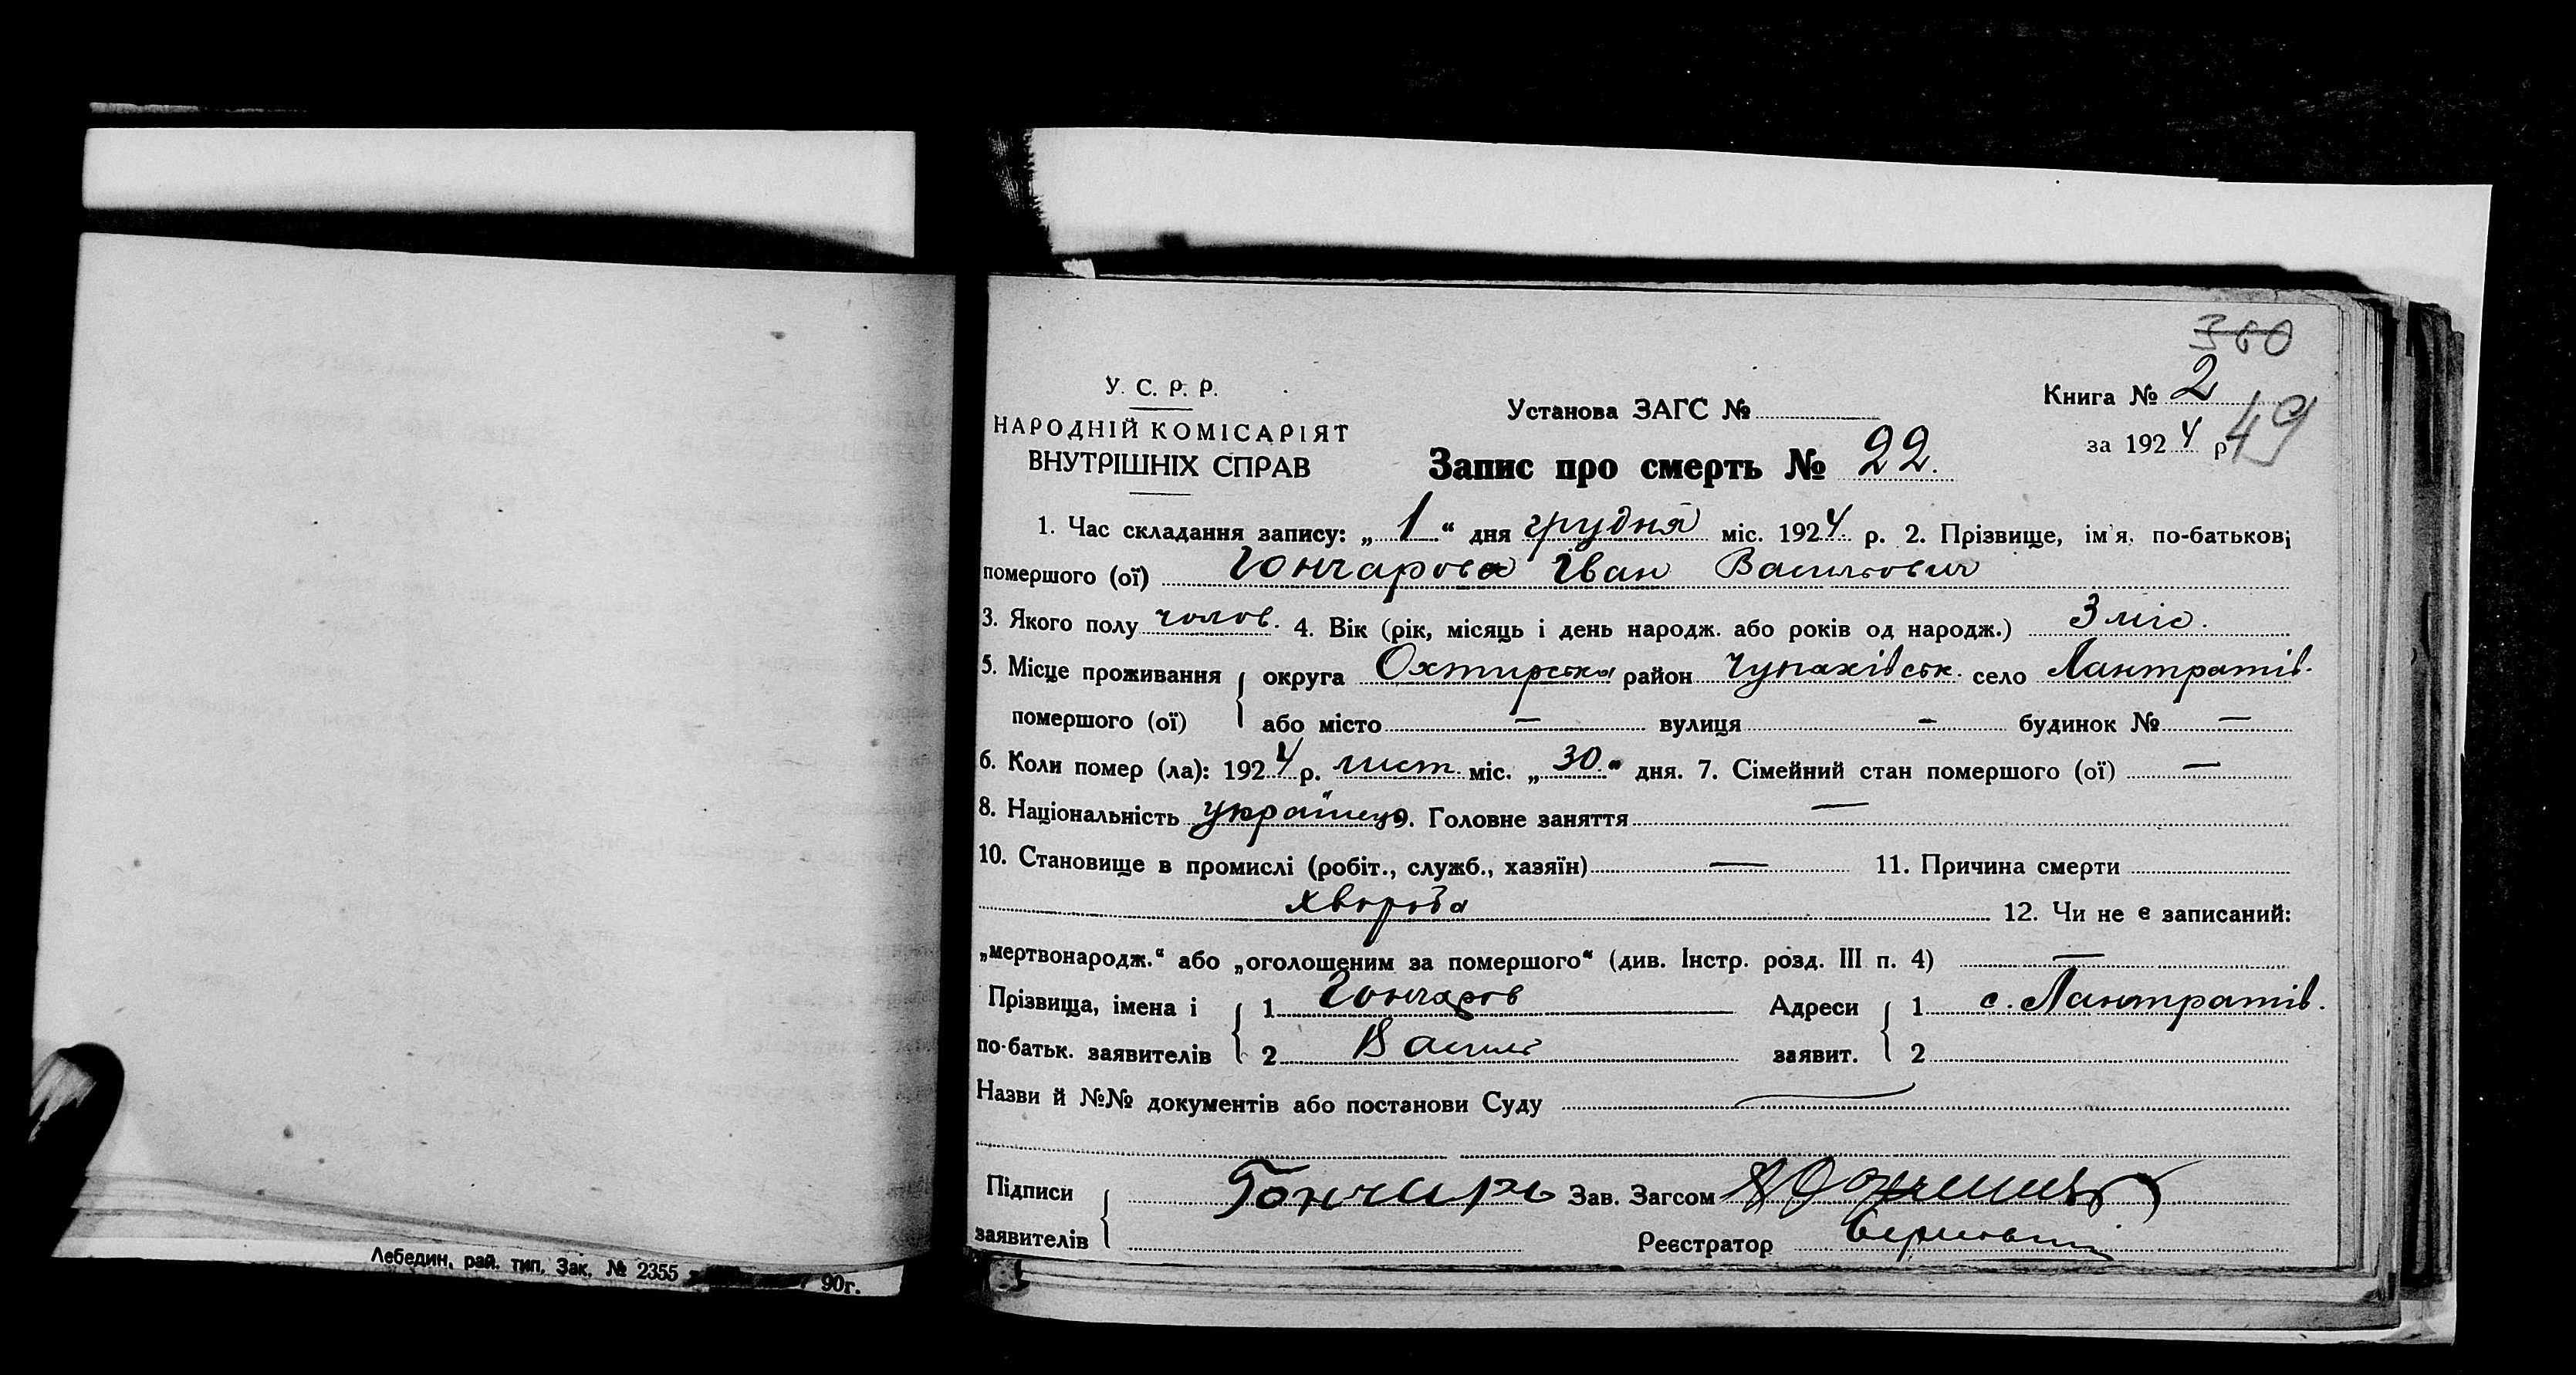 360
У. С. Р. Р.
НАРОДНІЙ КОМІСАРІЯТ
ВНУТРІШНІХ СПРАВ
Установа ЗАГС №
Книга № 2
за 1924 р.
49
Запис про смерть № 22.
1. Час складання запису: „1“ дня грудня міс. 1924 р. 2. Прізвище, ім'я, по-батькові
помершого (ої) Гончарова Іван Васильович
3. Якого полу чолов. 4. Вік (рік, місяць і день народж. або років од народж.) 3 міс.
5. Місце проживання округа Охтирська район Чупахівськ. село Лантратів.
помершого (ої) або місто — вулиця — будинок № —
6. Коли помер (ла): 1924 р. лист. міс. „30.“ дня. 7. Сімейний стан помершого (ої) —
8. Національність українець 9. Головне заняття —
10. Становище в промислі (робіт., служб., хазяїн) — 11. Причина смерти
хвороба 12. Чи не є записаний:
„мертвонародж.“ або „оголошеним за помершого“ (див. Інстр. розд. III п. 4) —
Прізвища, імена і 1 Гончаров Адреси 1 с. Лантратів.
по-батьк. заявителів 2 Василь заявит. 2
Назви й №№ документів або постанови Суду —
Підписи Гончарь Зав. Загсом
заявителів Реєстратор
Лебедин, рай. тип. Зак. № 2355 90г.